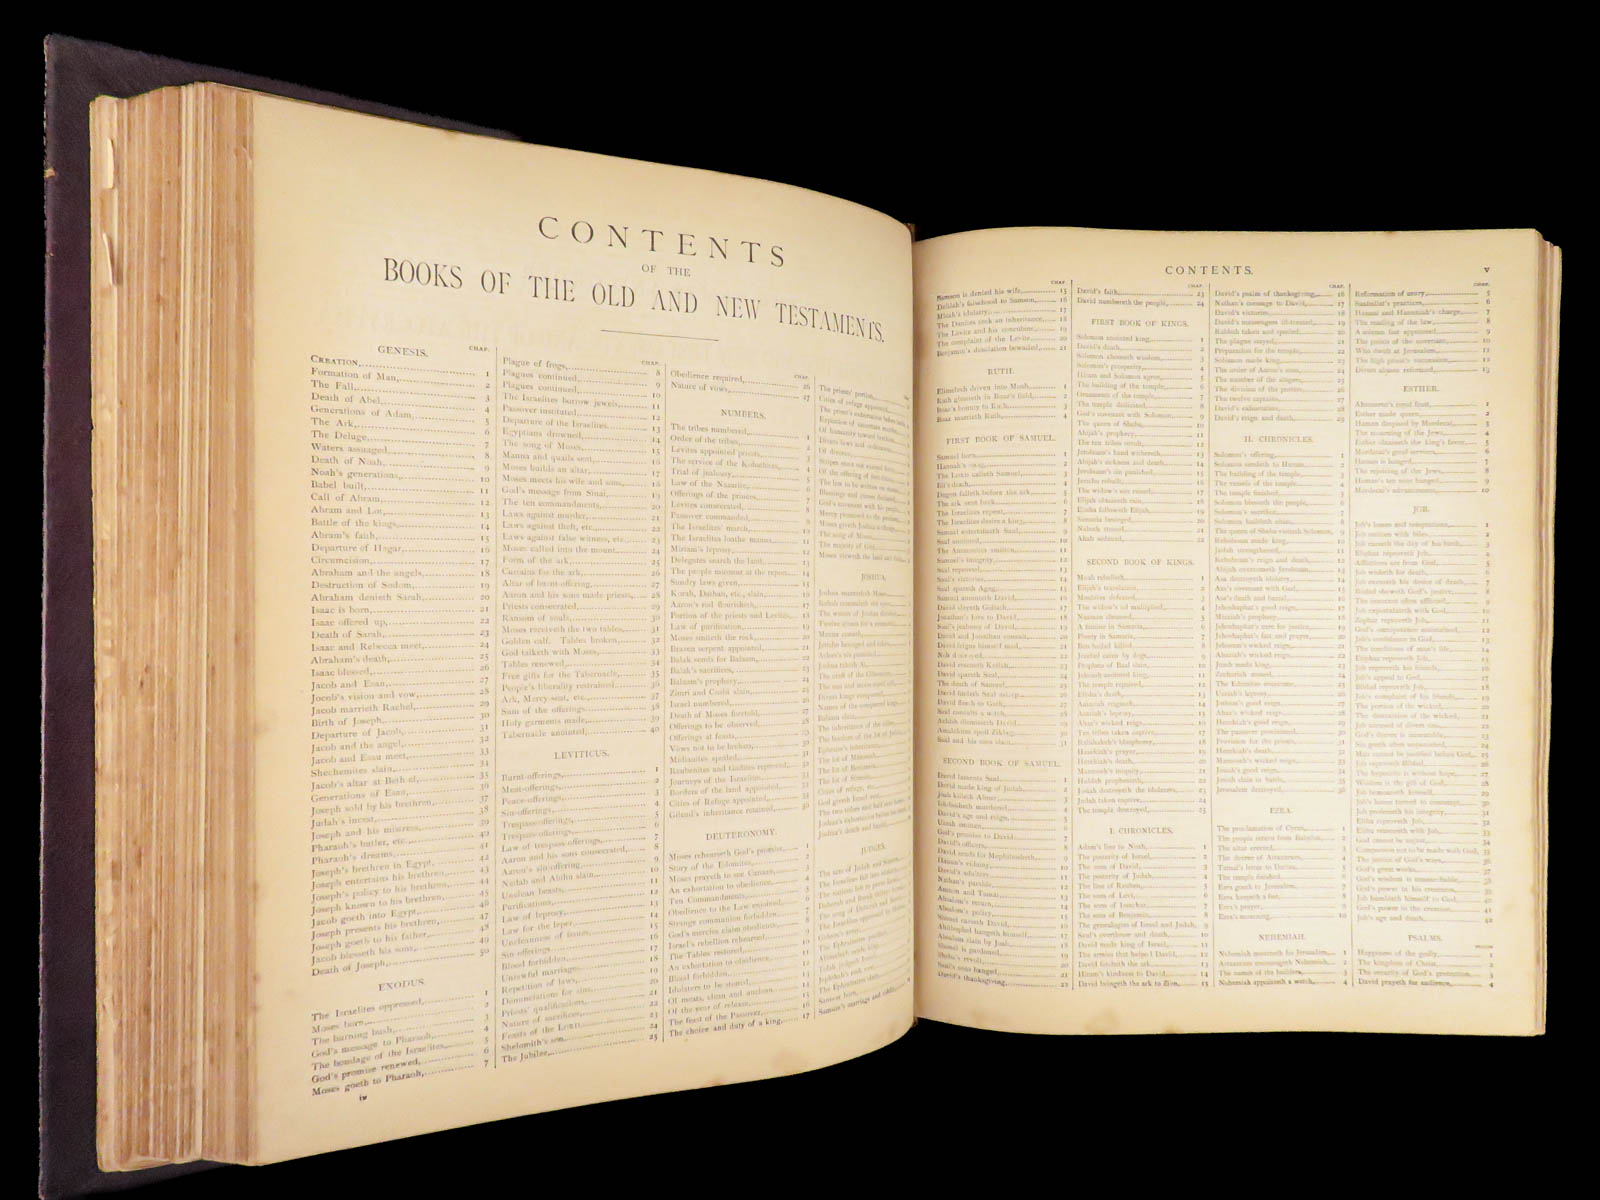 CONTENTS
OF THE
BOOKS OF THE OLD AND NEW TESTAMENTS.
GENESIS.
CHAP.
Creation, 1
Formation of Man, 2
The Fall, 3
Death of Abel, 4
Generations of Adam, 5
The Ark, 6
The Deluge, 7
Waters assuaged, 8
Death of Noah, 9
Noah's generations, 10
Babel built, 11
Call of Abram, 12
Abram and Lot, 13
Battle of the kings, 14
Abram's faith, 15
Departure of Hagar, 16
Circumcision, 17
Abraham and the angels, 18
Destruction of Sodom, 19
Abraham denieth Sarah, 20
Isaac is born, 21
Isaac offered up, 22
Death of Sarah, 23
Isaac and Rebecca meet, 24
Abraham's death, 25
Isaac blessed, 26
Jacob and Esau, 27
Jocob's vision and vow, 28
Jacob marrieth Rachel, 29
Birth of Joseph, 30
Departure of Jacob, 31
Jacob and the angel, 32
Jacob and Esau meet, 33
Shechemites slain, 34
Jacob's altar at Beth-el, 35
Generations of Esau, 36
Joseph sold by his brethren, 37
Judah's incest, 38
Joseph and his mistress, 39
Pharaoh's butler, etc., 40
Pharaoh's dreams, 41
Joseph's brethren in Egypt, 42
Joseph entertains his brethren, 43
Joseph's policy to his brethren, 44
Joseph known to his brethren, 45
Jacob goeth into Egypt, 46
Joseph presents his brethren, 47
Joseph goeth to his father, 48
Jacob blesseth his sons, 49
Death of Joseph, 50
EXODUS.
The Israelites oppressed, 1
Moses born, 2
The burning bush, 3
God's message to Pharaoh, 4
The bondage of the Israelites, 5
God's promise renewed, 6
Moses goeth to Pharaoh, 7
iv
CHAP.
Plague of frogs, 8
Plagues continued, 9
Plagues continued, 10
The Israelites borrow jewels, 11
Passover instituted, 12
Departure of the Israelites, 13
Egyptians drowned, 14
The song of Moses, 15
Manna and quails sent, 16
Moses builds an altar, 17
Moses meets his wife and sons, 18
God's message from Sinai, 19
The ten commandments, 20
Laws against murder, 21
Laws against theft, etc., 22
Laws against false witness, etc., 23
Moses called into the mount, 24
Form of the ark, 25
Curtains for the ark, 26
Altar of burnt offering, 27
Aaron and his sons made priests, 28
Priests consecrated, 29
Ransom of souls, 30
Moses receiveth the two tables, 31
Golden calf. Tables broken, 32
God talketh with Moses, 33
Tables renewed, 34
Free gifts for the Tabernacle, 35
People's liberality restrained, 36
Ark, Mercy seat, etc., 37
Sum of the offerings, 38
Holy garments made, 39
Tabernacle anointed, 40
LEVITICUS.
Burnt-offerings, 1
Meat-offerings, 2
Peace-offerings, 3
Sin-offerings, 4
Trespass-offerings, 5
Trespass-offerings, 6
Law of trespass-offerings, 7
Aaron and his sons consecrated, 8
Aaron's sin-offering, 9
Nadab and Abihu slain, 10
Unclean beasts, 11
Purifications, 12
Law of leprosy, 13
Law for the leper, 14
Uncleanness of issues, 15
Sin-offerings, 16
Blood forbidden, 17
Unlawful marriages, 18
Repetition of laws, 19
Denunciations for sins, 20
Priests' qualifications, 21
Nature of sacrifices, 22
Feasts of the Lord, 23
Shelomith's son, 24
The Jubilee, 25
CHAP.
Obedience required, 26
Nature of vows, 27
NUMBERS.
The tribes numbered, 1
Order of the tribes, 2
Levites appointed priests, 3
The service of the Kohathites, 4
Trial of jealousy, 5
Law of the Nazarite, 6
Offerings of the princes, 7
Levites consecrated, 8
Passover commanded, 9
The Israelites' march, 10
The Israelites loathe manna, 11
Miriam's leprosy, 12
Delegates search the land, 13
The people murmur at the report, 14
Sundry laws given, 15
Korah, Dathan, etc., slain, 16
Aaron's rod flourisheth, 17
Portion of the priests and Levites, 18
Law of purification, 19
Moses smiteth the rock, 20
Brazen serpent appointed, 21
Balak sends for Balaam, 22
Balak's sacrifices, 23
Balaam's prophecy, 24
Zimri and Cozbi slain, 25
Israel numbered, 26
Death of Moses foretold, 27
Offerings to be observed, 28
Offerings at feasts, 29
Vows not to be broken, 30
Midianites spoiled, 31
Reubenites and Gadites reproved, 32
Journeys of the Israelites, 33
Borders of the land appointed, 34
Cities of Refuge appointed, 35
Gilead's inheritance retained, 36
DEUTERONOMY.
Moses rehearseth God's promise, 1
Story of the Edomites, 2
Moses prayeth to see Canaan, 3
An exhortation to obedience, 4
Ten Commandments, 5
Obedience to the Law enjoined, 6
Strange communion forbidden, 7
God's mercies claim obedience, 8
Israel's rebellion rehearsed, 9
The Tables restored, 10
An exhortation to obedience, 11
Blood forbidden, 12
Idolaters to be stoned, 13
Of meats, clean and unclean, 14
Of the year of release, 15
The feast of the Passover, 16
The choice and duty of a king, 17
The priests' portion,
Cities of refuge appointed,
Of divorce,
The song of Moses,
The majesty of God,
JOSHUA.
JUDGES.
Samson born,
Samson's marriage and riddle,
CONTENTS.
v
CHAP.
Samson is denied his wife, 15
Delilah's falsehood to Samson, 16
Micah's idolatry, 17
The Danites seek an inheritance, 18
The Levite and his concubine, 19
The complaint of the Levite, 20
Benjamin's desolation bewailed, 21
RUTH.
Elimelech driven into Moab, 1
Ruth gleaneth in Boaz's field, 2
Boaz's bounty to Ruth, 3
Boaz marrieth Ruth, 4
FIRST BOOK OF SAMUEL.
Samuel born, 1
Hannah's song, 2
The Lord calleth Samuel, 3
Eli's death, 4
Dagon falleth before the ark, 5
The ark sent back, 6
The Israelites repent, 7
The Israelites desire a king, 8
Samuel entertaineth Saul, 9
Saul anointed, 10
The Ammonites smitten, 11
Samuel's integrity, 12
Saul reproved, 13
Saul's victories, 14
Saul spareth Agag, 15
Samuel anointeth David, 16
David slayeth Goliath, 17
Jonathan's love to David, 18
Saul's jealousy of David, 19
David and Jonathan consult, 20
David feigns himself mad, 21
Nob destroyed, 22
David rescueth Keilah, 23
David spareth Saul, 24
The death of Samuel, 25
David findeth Saul asleep, 26
David fleeth to Gath, 27
Saul consults a witch, 28
Achish dismisseth David, 29
Amalekites spoil Ziklag, 30
Saul and his sons slain, 31
SECOND BOOK OF SAMUEL.
David laments Saul, 1
David made king of Judah, 2
Joab killeth Abner, 3
Ishbosheth murdered, 4
David's age and reign, 5
Uzzah smitten, 6
God's promise to David, 7
David's officers, 8
David sends for Mephibosheth, 9
Hanun's villany, 10
David's adultery, 11
Nathan's parable, 12
Amnon and Tamar, 13
Absalom's return, 14
Absalom's policy, 15
Shimei curseth David, 16
Ahithophel hangeth himself, 17
Absalom slain by Joab, 18
Shimei is pardoned, 19
Sheba's revolt, 20
Saul's sons hanged, 21
David's thanksgiving, 22
CHAP.
David's faith, 23
David numbereth the people, 24
FIRST BOOK OF KINGS.
Solomon anointed king, 1
David's death, 2
Solomon chooseth wisdom, 3
Solomon's prosperity, 4
Hiram and Solomon agree, 5
The building of the temple, 6
Ornaments of the temple, 7
The temple dedicated, 8
God's covenant with Solomon, 9
The queen of Sheba, 10
Ahijah's prophecy, 11
The ten tribes revolt, 12
Jeroboam's hand withereth, 13
Abijah's sickness and death, 14
Jeroboam's sin punished, 15
Jericho rebuilt, 16
The widow's son raised, 17
Elijah obtaineth rain, 18
Elisha followeth Elijah, 19
Samaria besieged, 20
Naboth stoned, 21
Ahab seduced, 22
SECOND BOOK OF KINGS.
Moab rebelleth, 1
Elijah's translation, 2
Moabites defeated, 3
The widow's oil multiplied, 4
Naaman cleansed, 5
A famine in Samaria, 6
Plenty in Samaria, 7
Ben-hadad killed, 8
Jezebel eaten by dogs, 9
Prophets of Baal slain, 10
Jehoash anointed king, 11
The temple repaired, 12
Elisha's death, 13
Amaziah reigneth, 14
Azariah's leprosy, 15
Ahaz's wicked reign, 16
Ten tribes taken captive, 17
Rabshakeh's blasphemy, 18
Hezekiah's prayer, 19
Hezekiah's death, 20
Manasseh's iniquity, 21
Huldah prophesieth, 22
Josiah destroyeth the idolaters, 23
Judah taken captive, 24
The temple destroyed, 25
I. CHRONICLES.
Adam's line to Noah, 1
The posterity of Israel, 2
The sons of David, 3
The posterity of Judah, 4
The line of Reuben, 5
The sons of Levi, 6
The sons of Issachar, 7
The sons of Benjamin, 8
The genealogies of Israel and Judah, 9
Saul's overthrow and death, 10
David made king of Israel, 11
The armies that helped David, 12
David fetcheth the ark, 13
Hiram's kindness to David, 14
David bringeth the ark to Zion, 15
CHAP.
David's psalm of thanksgiving, 16
Nathan's message to David, 17
David's victories, 18
David's messengers ill-treated, 19
Rabbah taken and spoiled, 20
The plague stayed, 21
Preparation for the temple, 22
Solomon made king, 23
The order of Aaron's sons, 24
The number of the singers, 25
The division of the porters, 26
The twelve captains, 27
David's exhortation, 28
David's reign and death, 29
II. CHRONICLES.
Solomon's offering, 1
Solomon sendeth to Huram, 2
The building of the temple, 3
The vessels of the temple, 4
The temple finished, 5
Solomon blesseth the people, 6
Solomon's sacrifice, 7
Solomon buildeth cities, 8
The queen of Sheba visiteth Solomon, 9
Rehoboam made king, 10
Judah strengthened, 11
Rehoboam's reign and death, 12
Abijah overcometh Jeroboam, 13
Asa destroyeth idolatry, 14
Asa's covenant with God, 15
Asa's death and burial, 16
Jehoshaphat's good reign, 17
Micaiah's prophecy, 18
Jehoshaphat's care for justice, 19
Jehoshaphat's fast and prayer, 20
Jehoram's wicked reign, 21
Ahaziah's wicked reign, 22
Joash made king, 23
Zechariah stoned, 24
The Edomites overcome, 25
Uzziah's leprosy, 26
Jotham's good reign, 27
Ahaz's wicked reign, 28
Hezekiah's good reign, 29
The passover proclaimed, 30
Provision for the priests, 31
Hezekiah's death, 32
Manasseh's wicked reign, 33
Josiah's good reign, 34
Josiah slain in battle, 35
Jerusalem destroyed, 36
EZRA.
The proclamation of Cyrus, 1
The people return from Babylon, 2
The altar erected, 3
The decree of Artaxerxes, 4
Tatnai's letter to Darius, 5
The temple finished, 6
Ezra goeth to Jerusalem, 7
Ezra keepeth a fast, 8
Ezra's prayer, 9
Ezra's mourning, 10
NEHEMIAH.
Nehemiah mourneth for Jerusalem, 1
Artaxerxes encourageth Nehemiah, 2
The names of the builders, 3
Nehemiah appointeth a watch, 4
CHAP.
Reformation of usury, 5
Sanballat's practices, 6
Hanani and Hananiah's charge, 7
The reading of the law, 8
A solemn fast appointed, 9
The points of the covenant, 10
Who dwelt at Jerusalem, 11
The high priest's succession, 12
Divers abuses reformed, 13
ESTHER.
Ahasuerus' royal feast, 1
Esther made queen, 2
Haman despised by Mordecai, 3
The mourning of the Jews, 4
Esther obtaineth the king's favor, 5
Mordecai's good services, 6
Haman is hanged, 7
The rejoicing of the Jews, 8
Haman's ten sons hanged, 9
Mordecai's advancement, 10
JOB.
Job's losses and temptations, 1
Job smitten with biles, 2
Job curseth the day of his birth, 3
Eliphaz reproveth Job, 4
Afflictions are from God, 5
Job wisheth for death, 6
Job excuseth his desire of death, 7
Bildad sheweth God's justice, 8
The innocent often afflicted, 9
Job expostulateth with God, 10
Zophar reproveth Job, 11
God's omnipotence maintained, 12
Job's confidence in God, 13
The conditions of man's life, 14
Eliphaz reproveth Job, 15
Job reproveth his friends, 16
Job's appeal to God, 17
Bildad reproveth Job, 18
Job's complaint of his friends, 19
The portion of the wicked, 20
The destruction of the wicked, 21
Job accused of divers sins, 22
God's decree is immutable, 23
Sin goeth often unpunished, 24
Man cannot be justified before God, 25
Job reproveth Bildad, 26
The hypocrite is without hope, 27
Wisdom is the gift of God, 28
Job bemoaneth himself, 29
Job's honor turned to contempt, 30
Job professeth his integrity, 31
Elihu reproveth Job, 32
Elihu reasoneth with Job, 33
God cannot be unjust, 34
Comparison not to be made with God, 35
The justice of God's ways, 36
God's great works, 37
God's wisdom is unsearchable, 38
God's power in his creatures, 39
Job humbleth himself to God, 40
God's power in the creation, 41
Job's age and death, 42
PSALMS.
Happiness of the godly, 1
The kingdom of Christ, 2
The security of God's protection, 3
David prayeth for audience, 4